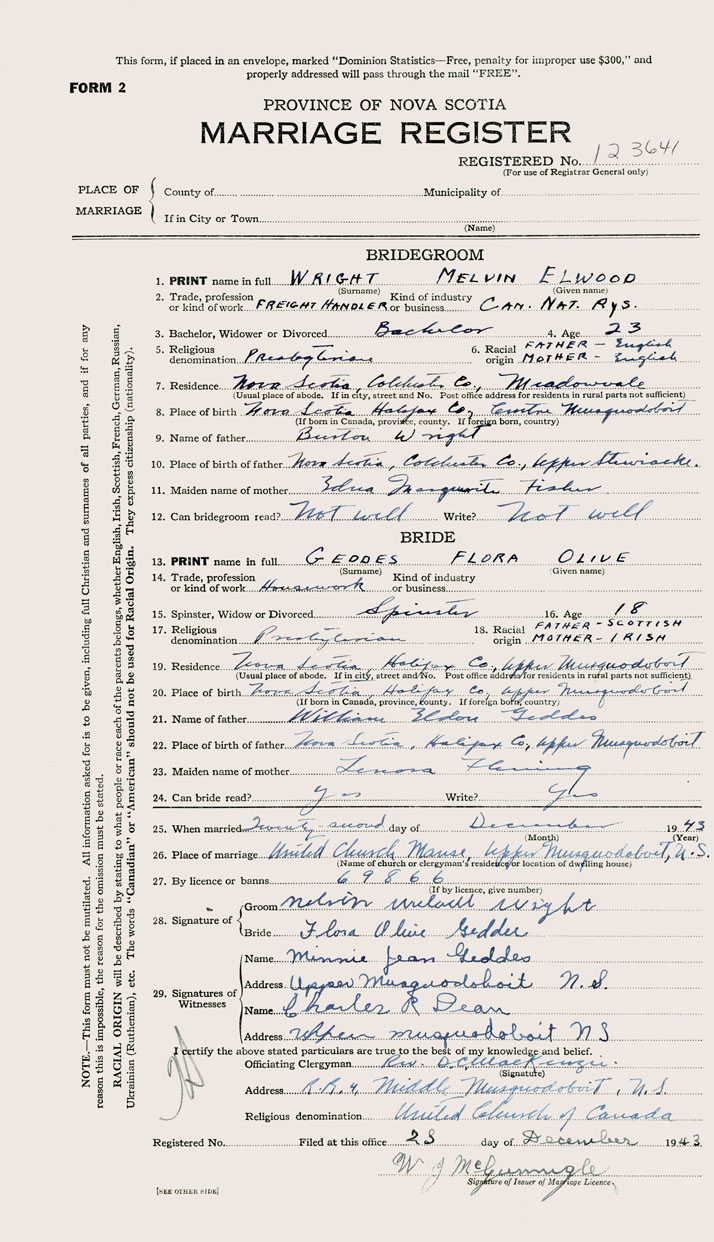 This form, if placed in an envelope, marked "Dominion Statistics—Free, penalty for improper use $300," and
properly addressed will pass through the mail "FREE".
FORM 2
PROVINCE OF NOVA SCOTIA
MARRIAGE REGISTER
REGISTERED No. 123641
(For use of Registrar General only)
PLACE OF MARRIAGE
County of
Municipality of
If in City or Town
(Name)
BRIDEGROOM
1. PRINT name in full WRIGHT MELVIN ELWOOD
(Surname) (Given name)
2. Trade, profession or kind of work FREIGHT HANDLER Kind of industry or business CAN. NAT. Rys.
3. Bachelor, Widower or Divorced Bachelor 4. Age 23
5. Religious denomination Presbyterian 6. Racial origin FATHER - English MOTHER - English
7. Residence Nova Scotia, Colchester Co., Meadowvale
(Usual place of abode. If in city, street and No. Post office address for residents in rural parts not sufficient)
8. Place of birth Nova Scotia Halifax Co, Centre Musquodoboit
(If born in Canada, province, county. If foreign born, country)
9. Name of father Burton Wright
10. Place of birth of father Nova Scotia, Colchester Co., Upper Stewiacke.
11. Maiden name of mother Edna Marguerite Fisher
12. Can bridegroom read? Not well Write? Not well
BRIDE
13. PRINT name in full GEDDES FLORA OLIVE
(Surname) (Given name)
14. Trade, profession or kind of work Housework Kind of industry or business
15. Spinster, Widow or Divorced Spinster 16. Age 18
17. Religious denomination Presbyterian 18. Racial origin FATHER - SCOTTISH MOTHER - IRISH
19. Residence Nova Scotia, Halifax Co., Upper Musquodoboit
(Usual place of abode. If in city, street and No. Post office address for residents in rural parts not sufficient)
20. Place of birth Nova Scotia, Halifax Co, Upper Musquodoboit
(If born in Canada, province, county. If foreign born, country)
21. Name of father William Eldon Geddes
22. Place of birth of father Nova Scotia, Halifax Co, Upper Musquodoboit
23. Maiden name of mother Lenora Fleming
24. Can bride read? Yes Write? Yes
25. When married Twenty second day of December 1943
(Month) (Year)
26. Place of marriage United Church Manse, Upper Musquodoboit, N.S.
(Name of church or clergyman's residence or location of dwelling house)
27. By licence or banns 69866
(If by licence, give number)
28. Signature of
Groom Melvin Wright
Bride Flora Olive Geddes
29. Signatures of Witnesses
Name Minnie Jean Geddes
Address Upper Musquodoboit N.S.
Name Charles R Dean
Address Upper musquodoboit NS
I certify the above stated particulars are true to the best of my knowledge and belief.
Officiating Clergyman Rev. D.C. MacKenzie.
(Signature)
Address R.R.4, Middle Musquodoboit, N.S.
Religious denomination United Church of Canada
Registered No. Filed at this office 28 day of December 1943
W J McGunnigle
Signature of Issuer of Marriage Licence.
[SEE OTHER SIDE]
NOTE.—This form must not be mutilated. All information asked for is to be given, including full Christian and surnames of all parties, and if for any
reason this is impossible, the reason for the omission must be stated.
RACIAL ORIGIN will be described by stating to what people or race each of the parents belongs, whether English, Irish, Scottish, French, German, Russian,
Ukrainian (Ruthenian), etc. The words "Canadian" or "American" should not be used for Racial Origin. They express citizenship (nationality).